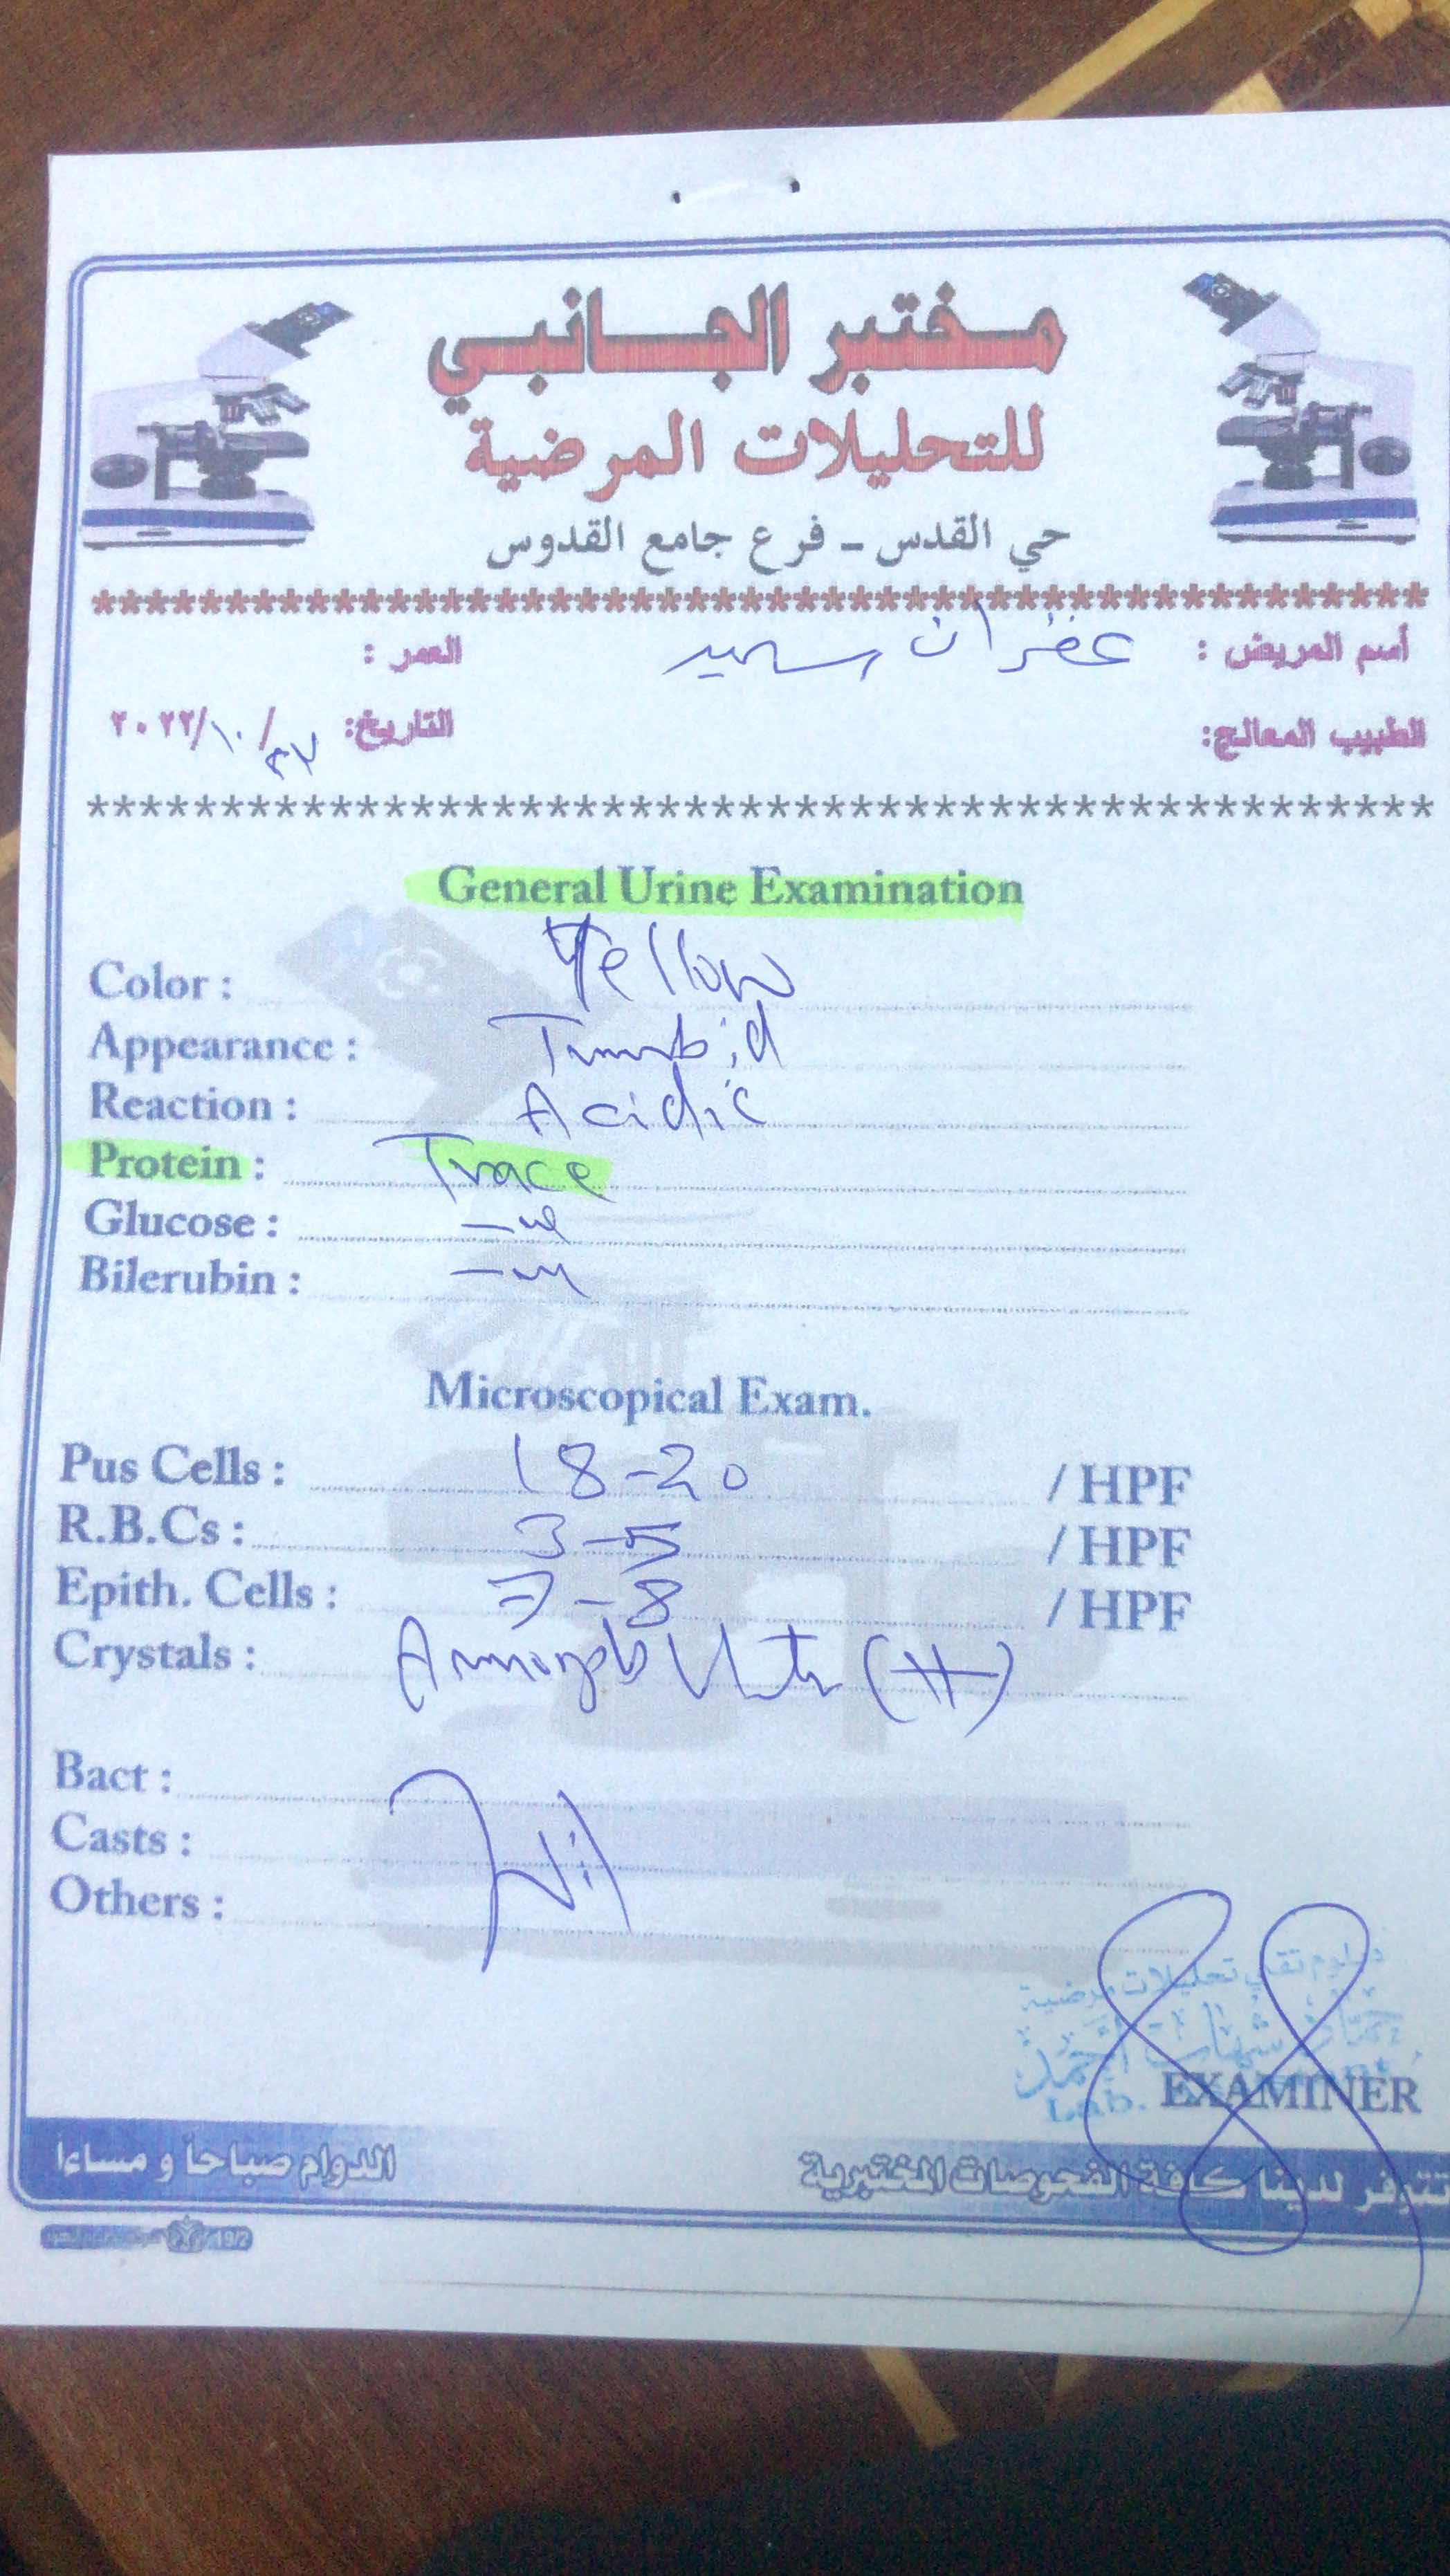 مختبر الجانبي
للتحليلات المرضية
حي القدس - فرع جامع القدوس
*****************************************************
أسم المريض : غفران سعيد العمر :
الطبيب المعالج: التاريخ: ٢٧/١٠/٢٠٢٢
*****************************************************
General Urine Examination
Color : Yellow
Appearance : Turbid
Reaction : Acidic
Protein : Trace
Glucose : -ve
Bilerubin : -ve
Microscopical Exam.
Pus Cells : 18-20 / HPF
R.B.Cs : 3-5 / HPF
Epith. Cells : 7-8 / HPF
Crystals : Amorph Urate (++)
Bact :
Casts : Nil
Others :
دبلوم تقني تحليلات مرضية
شهاب أحمد
Lab.
EXAMINER
تتوفر لدينا كافة الفحوصات المختبرية الدوام صباحاً و مساءاً